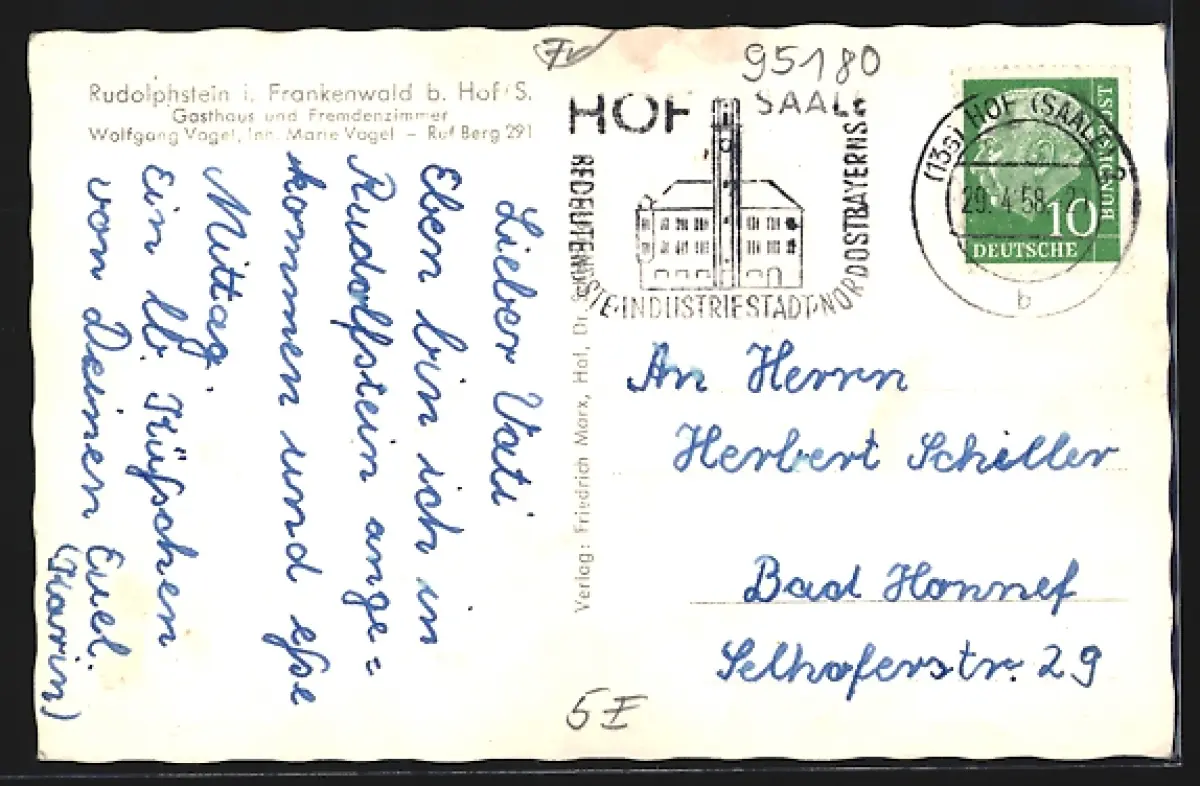 Rudolphstein i. Frankenwald b. Hof/S.
Gasthaus und Fremdenzimmer
Wolfgang Vogel, Inh. Marie Vogel – Ruf Berg 291
Lieber Vati
Eben bin ich in
Rudolfstein ange=
kommen und eſse
Mittag.
Ein lb. Küſschen
von Deinen Evel.
(Karin)
Verlag: Friedrich Marx, Hof, Dr.
95180
HOF SAALE
BEDEUTENDSTE·INDUSTRIESTADT·NORDOSTBAYERNS
(13a) HOF (SAALE) 2
29.4.58
b
DEUTSCHE
BUNDESPOST
10
An Herrn
Herbert Schiller
Bad Honnef
Selhoferstr. 29
5 E